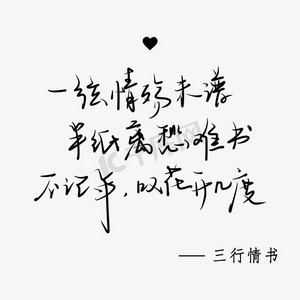 一弦情殇未谱
半纸离愁难书
不记年,叹花开几度
—— 三行情书